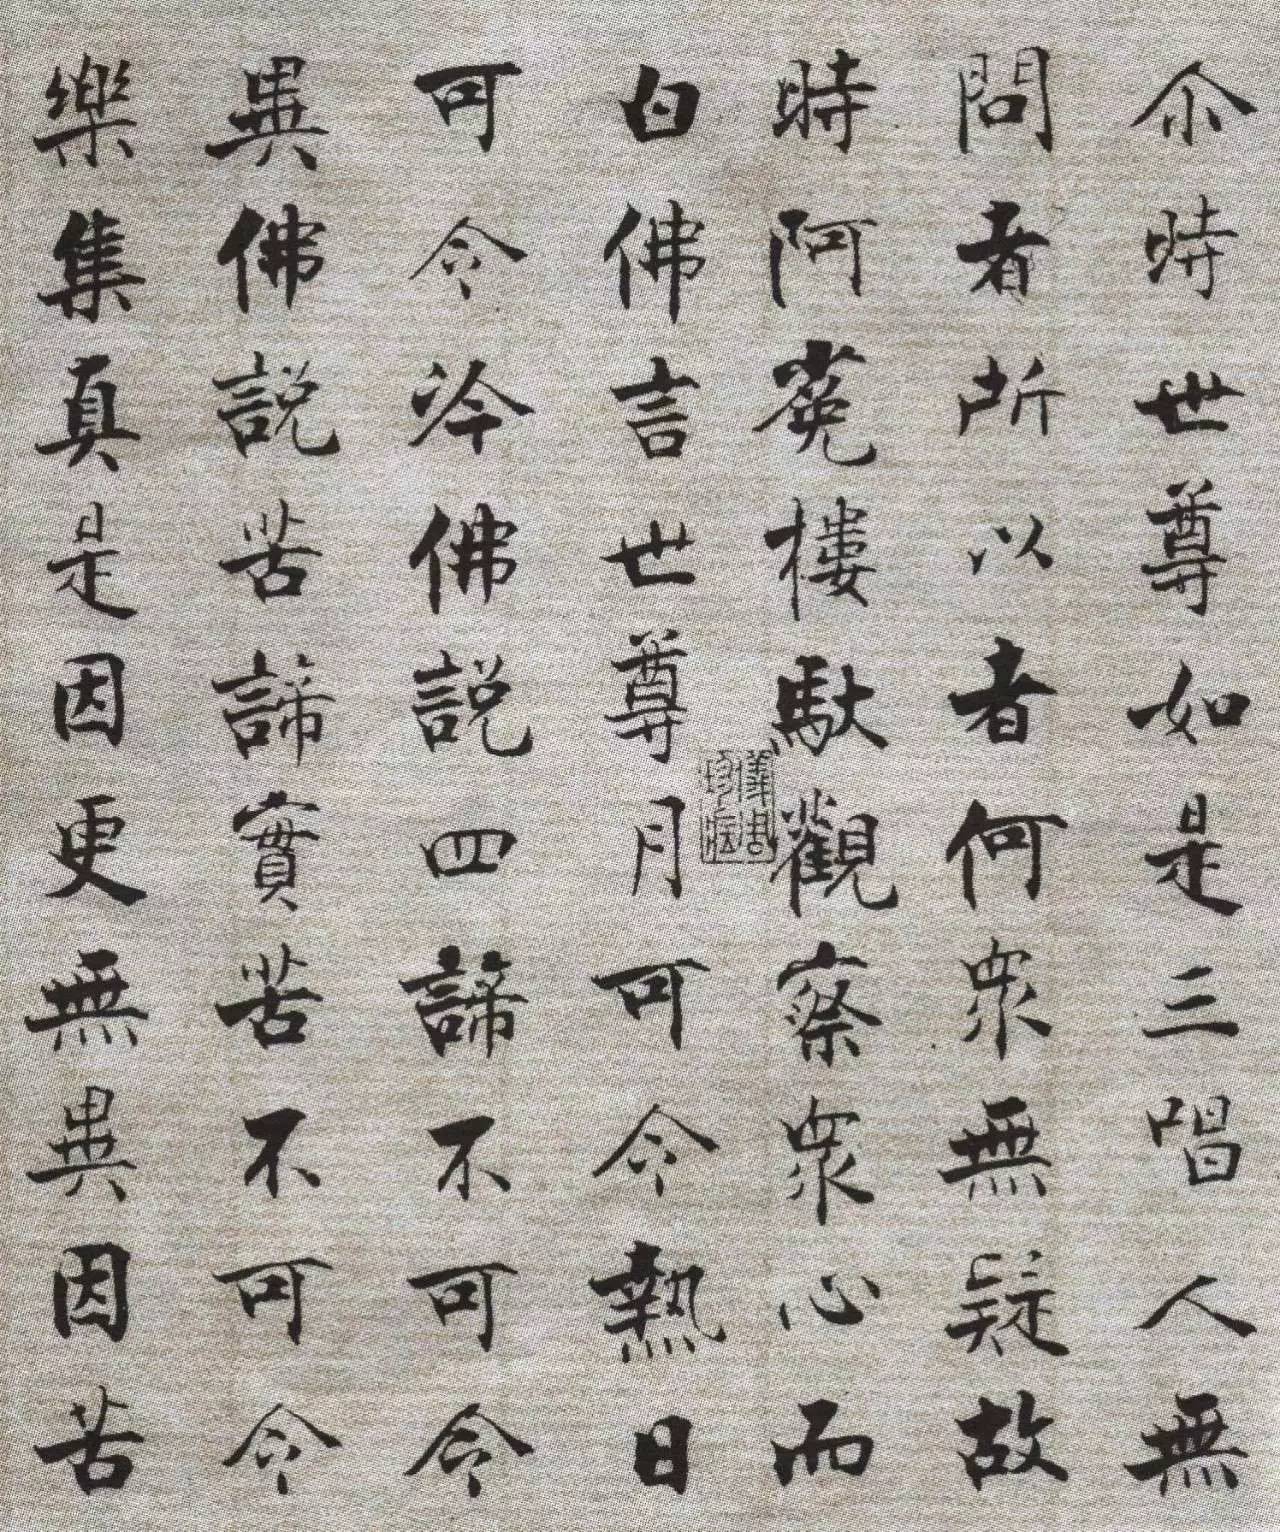 尒時世尊如是三唱人無
問者所以者何衆無疑故
時阿菟樓馱觀察衆心而
白佛言世尊月可令熱日
可令冷佛說四諦不可令
異佛說苦諦實苦不可令
樂集真是因更無異因苦
儀周珍藏